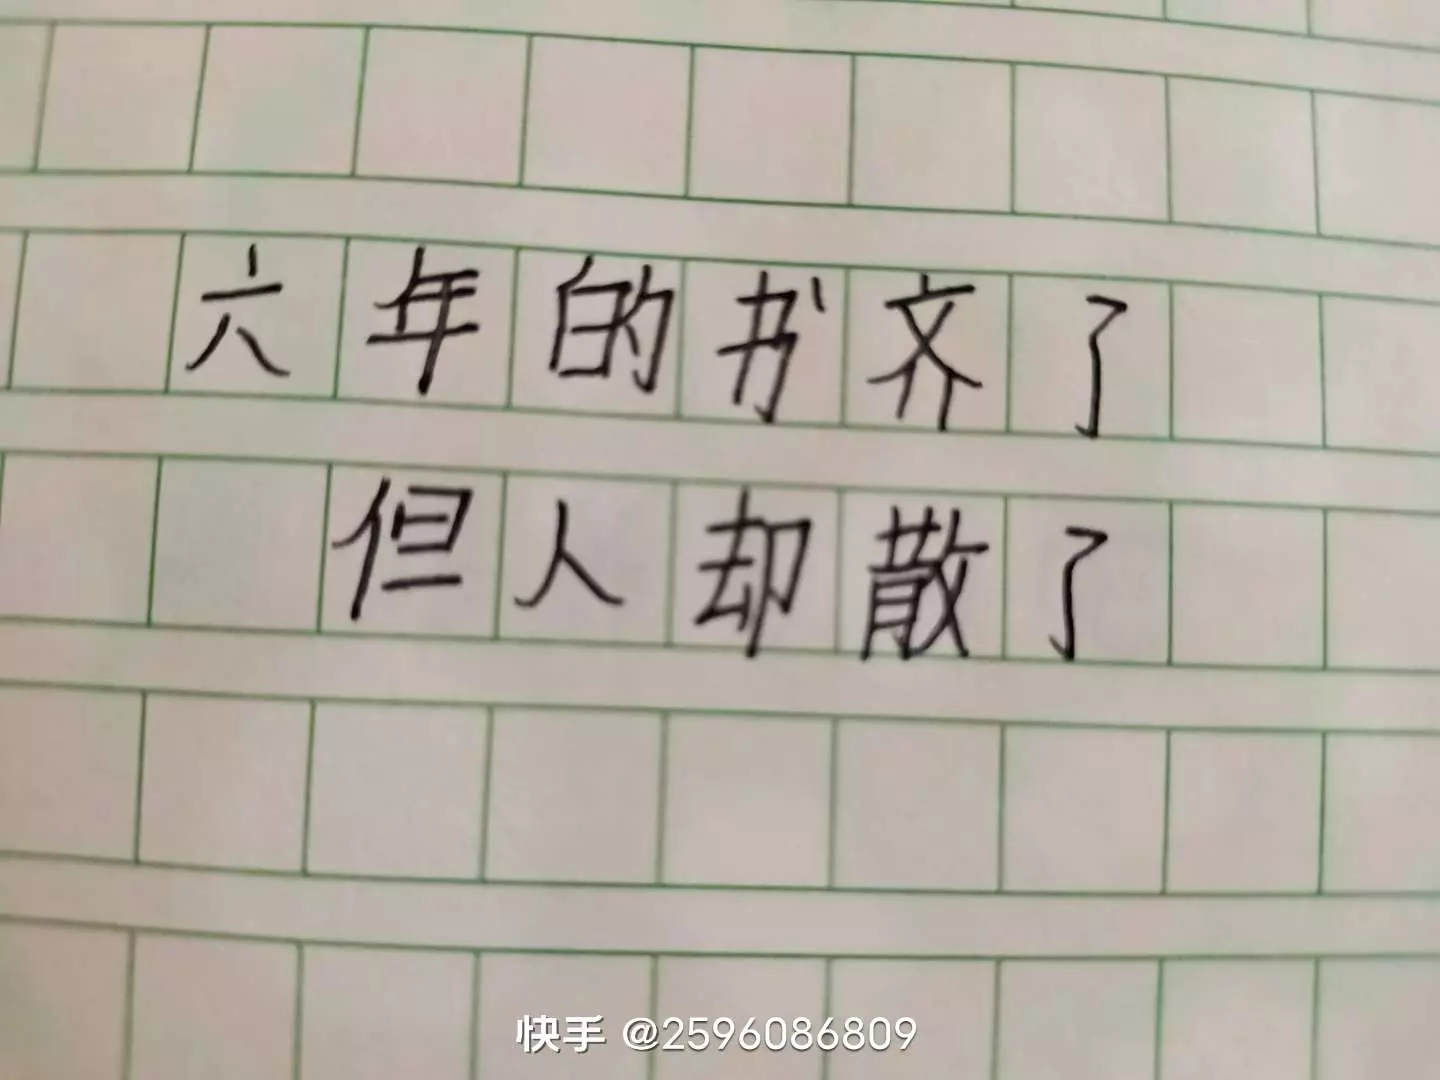 六年的书齐了
但人却散了
快手 @2596086809